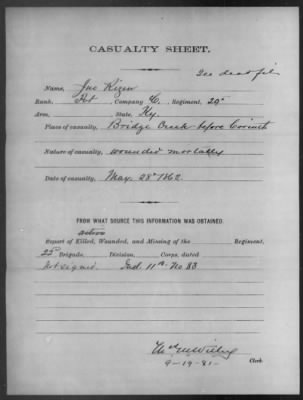 CASUALTY SHEET.
See dead file
Name, Jno Kizer
Rank, Pvt, Company C, Regiment, 20"
Arm, State, Ky.
Place of casualty, Bridge Creek before Corinth
Nature of casualty, wounded mortally
Date of casualty, May 28" 1862.
FROM WHAT SOURCE THIS INFORMATION WAS OBTAINED.
action
Report of Killed, Wounded, and Missing of the Regiment,
22" Brigade, Division, Corps, dated
Not signed. No 88
Clerk.
9-19-81-